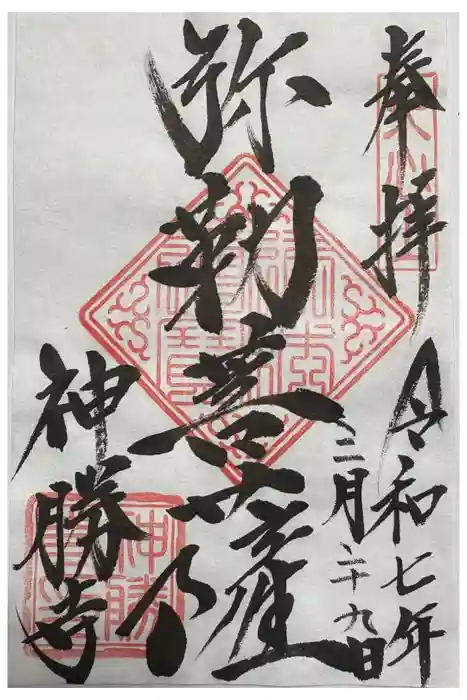 奉拝
令和七年
三月二十九日
弥勒菩薩
神勝寺